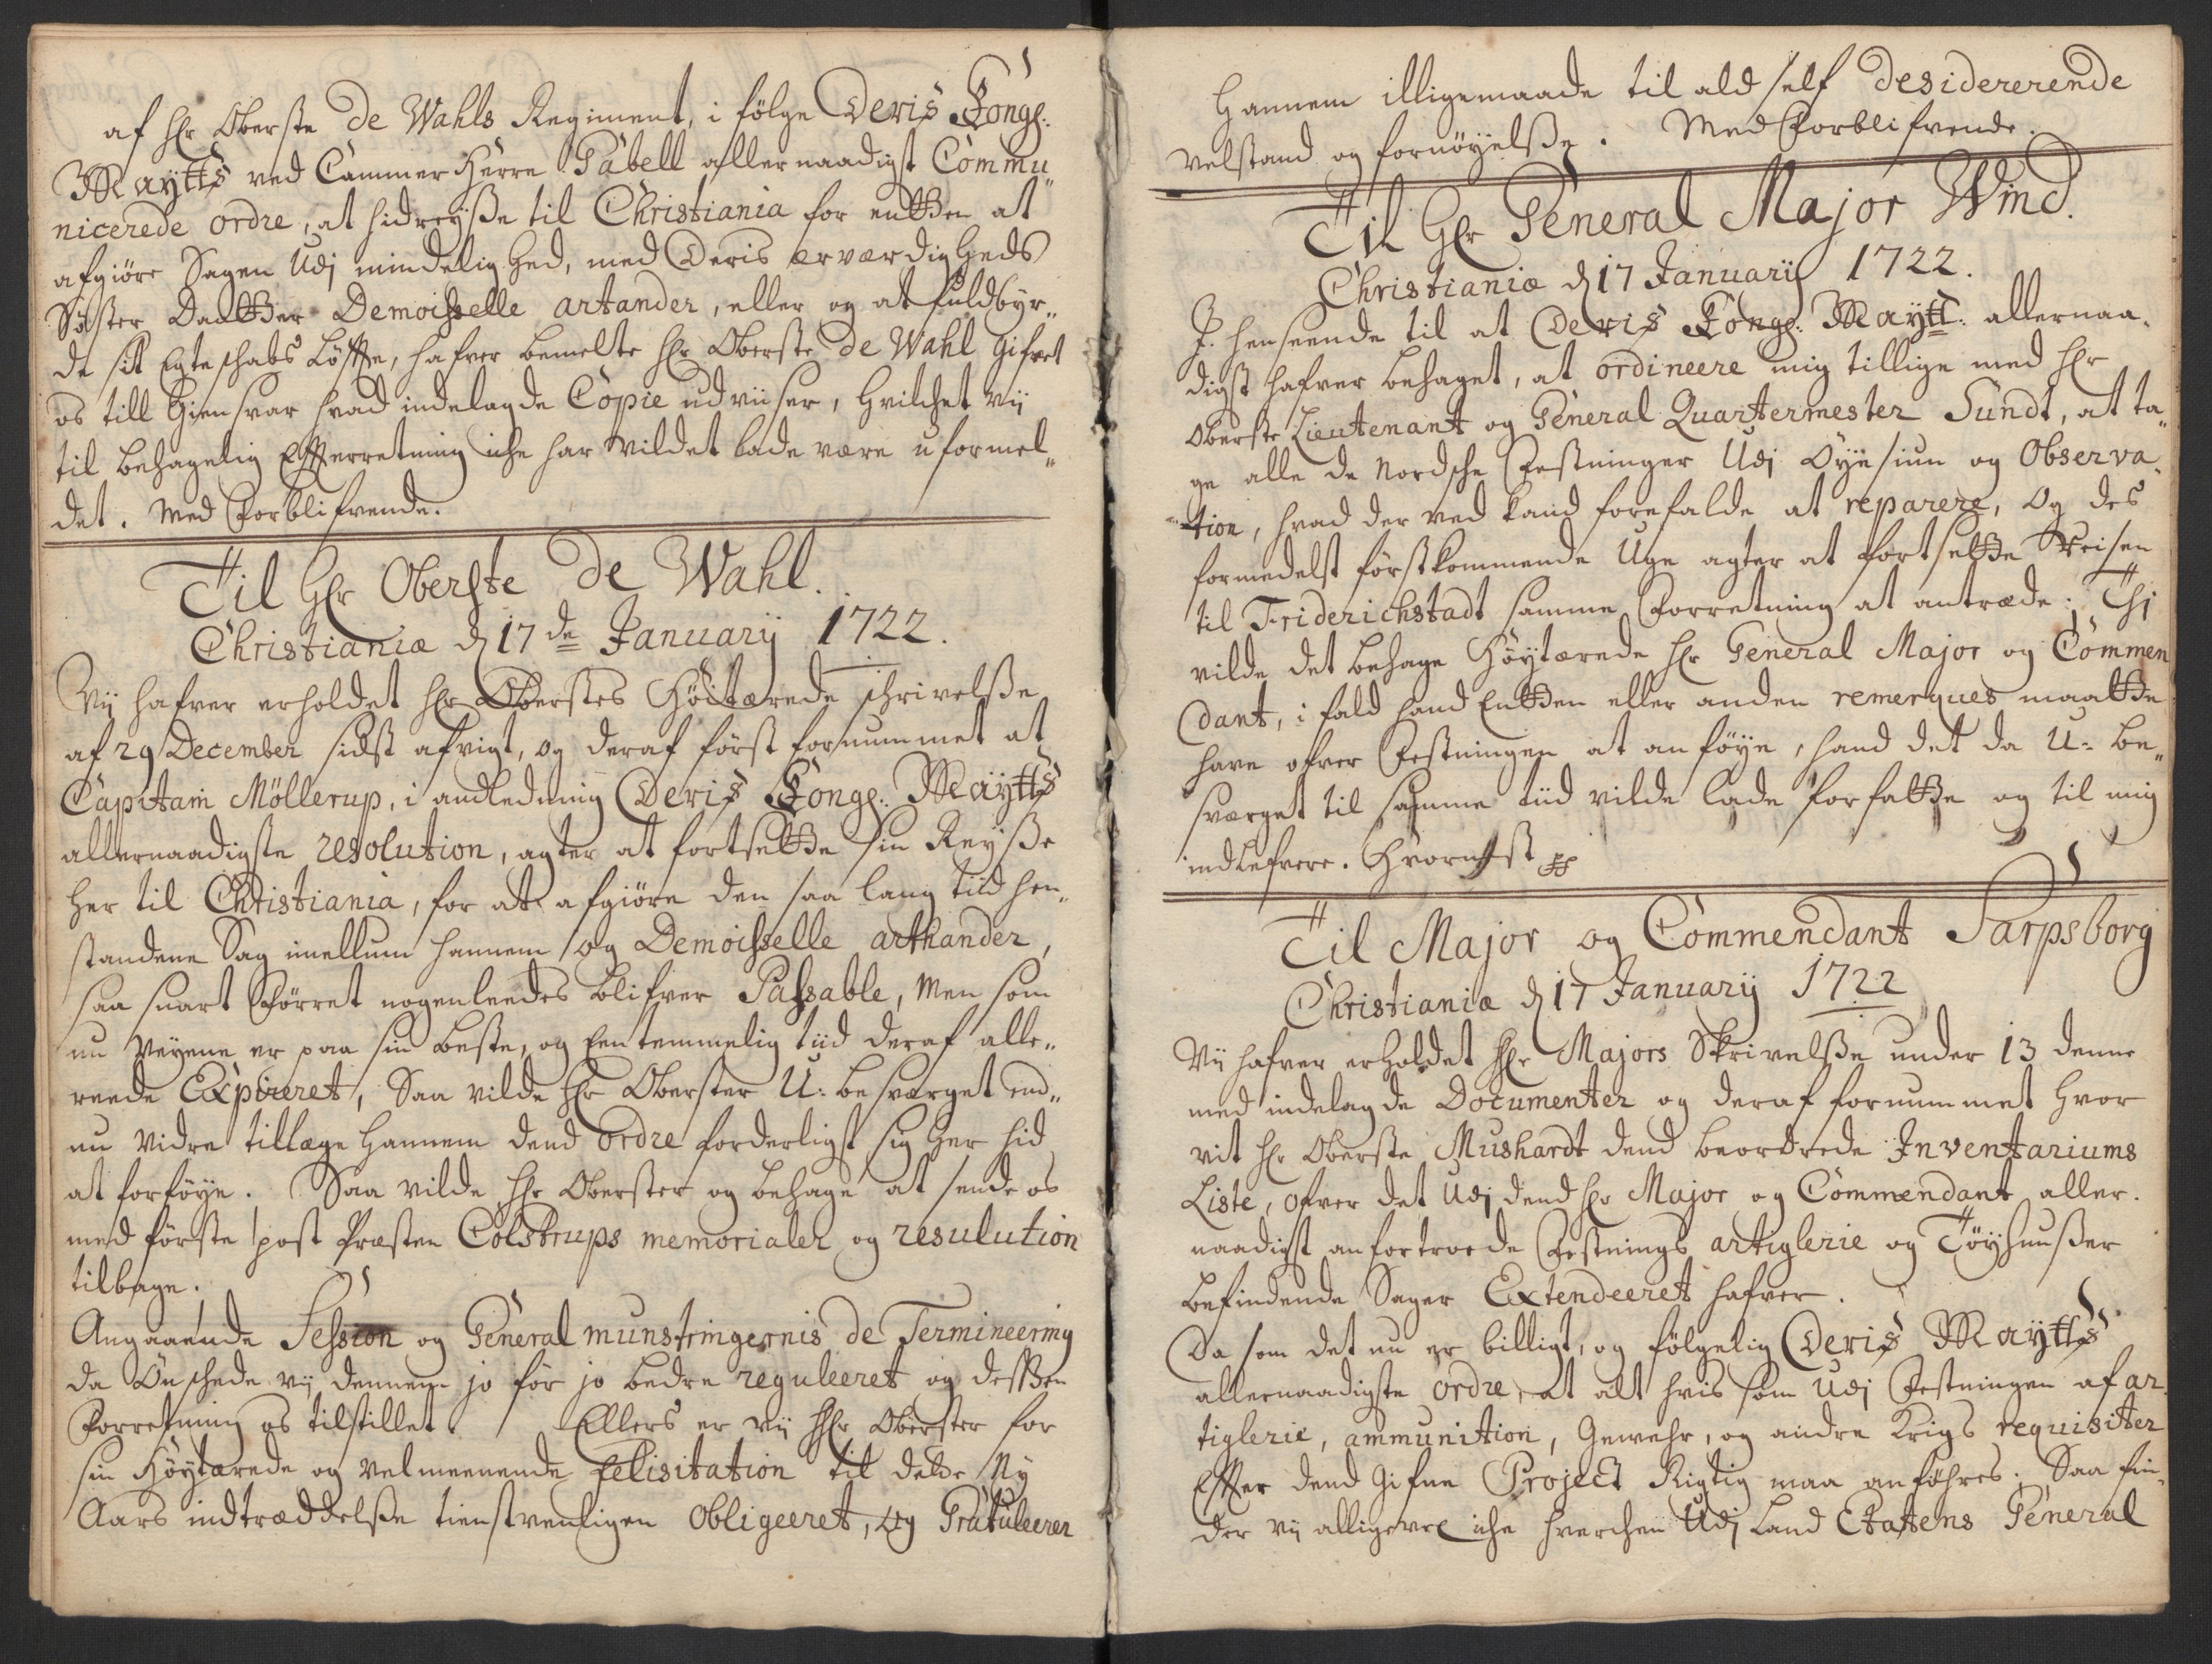 af Hr Oberste de Wahls Regiment, i følge Deris Kongl:
Maytts ved Cammer Herre Gabell allernaadigst Commu„
nicerede ordre, at hidreyße til Christiania for entten at
afgiöre Sagen Udj mindelig hed, med Deris ærværdigheds
Søster Daatter Demoisselle artander, eller og at fuldbyr„
de sit Egteschabs Løffte, hafver bemelte Hr Oberste de Wahl gifvet
os till giensvar hvad indelagde Copie udviiser, hvilchet vij
til behagelig Efterretning iche har vildet lade være uformel„
det. Med Forblifvende.
Til Hr Oberste de Wahl.
Christianiæ d 17de Januarij 1722.
Vij hafver erholdet Hr Oberstes Høitærede schrivelße
af 29 December sidst afvigt, og deraf først fornummet at
Capitain Möllerup, i andledning Deris Kongl: Maytts
allernaadigste resolution, agter at fortsette sin Reyße
her til Christiania, for at afgiöre den saa lang tiid hen„
standene Sag imellum hannem og Demoisselle arthander,
saa snart Førret nogenleedes blifver Passable, Men som
nu Veyene er paa sin beste, og Een temmelig tiid deraf alle„
reede Expireret, Saa vilde Hr Oberster U: besværget end„
nu vidre tillæge hannem dend ordre forderligst sig her hid
at forføye. Saa vilde Hr Oberster og behage at sende os
med første post Præsten Colstrups memorialer og resulution
tilbage.
Angaaende Session og General munstringernis de Termineering
da Önschede vij dennem jo før jo bedre reguleeret og desßen
Forretning os tilstillet. Ellers er vij Hr Oberster for
sin Høytærede og velmeenende felisitation til dette Ny
Aars indtræddelße tienstvenligen obligeeret, og Gratuleerer
Hannem illigemaade til ald self desidererende
velstand og fornøyelße. Med Forblifvende.
Til Hr General Major Wind.
Christianiæ d 17 Januarij 1722.
I henseende til at Deris Kongl: Maytt: allernaa„
digst hafver behaget, at ordineere mig tillige med Hr
Oberste Lieutenant og General Quartermester Sundt, at ta„
ge alle de Nordsche Festninger Udj Öyesiun og Observa„
tion, hvad der ved kand forefalde at reparere, Og des
formedelst førstkommende Uge agter at fortsette Reisen
til Friderichstadt samme Forretning at antræde; Thi
vilde det behage Høytærede Hr General Major og Commen
dant, i fald hand Entten eller anden remerques maatte
have ofver Festningen at anføye, hand det da U: be„
sværget til samme tiid vilde lade forfatte og til mig
indlefvere. Hvornest
Til Major og Commendant Sarpsborg
Christianiæ d 17 Januarij 1722
Vij hafver erholdet Hr Majors Skrivelße under 13 denne
med indelagde Documenter og deraf fornummet hvor
vit Hr Oberste Mushardt dend beordrede Inventariums
Liste, ofver det Udj dend Hr Major og Commendant aller„
naadigst anfortroede Festnings artiglerie og Töyhuußer
befindende Sager Extendeeret hafver.
Da som det nu er billigt, og følgelig Deris Maytts
allernaadigste ordre, at alt hvis som Udj Festningen af ar„
tiglerie, ammunition, Gewehr, og andre Krigs requisiter
Efter dend gifne Project Rigtig maa anföhres; Saa fin„
der vij alligevel iche hverchen Udj Land Etattens General